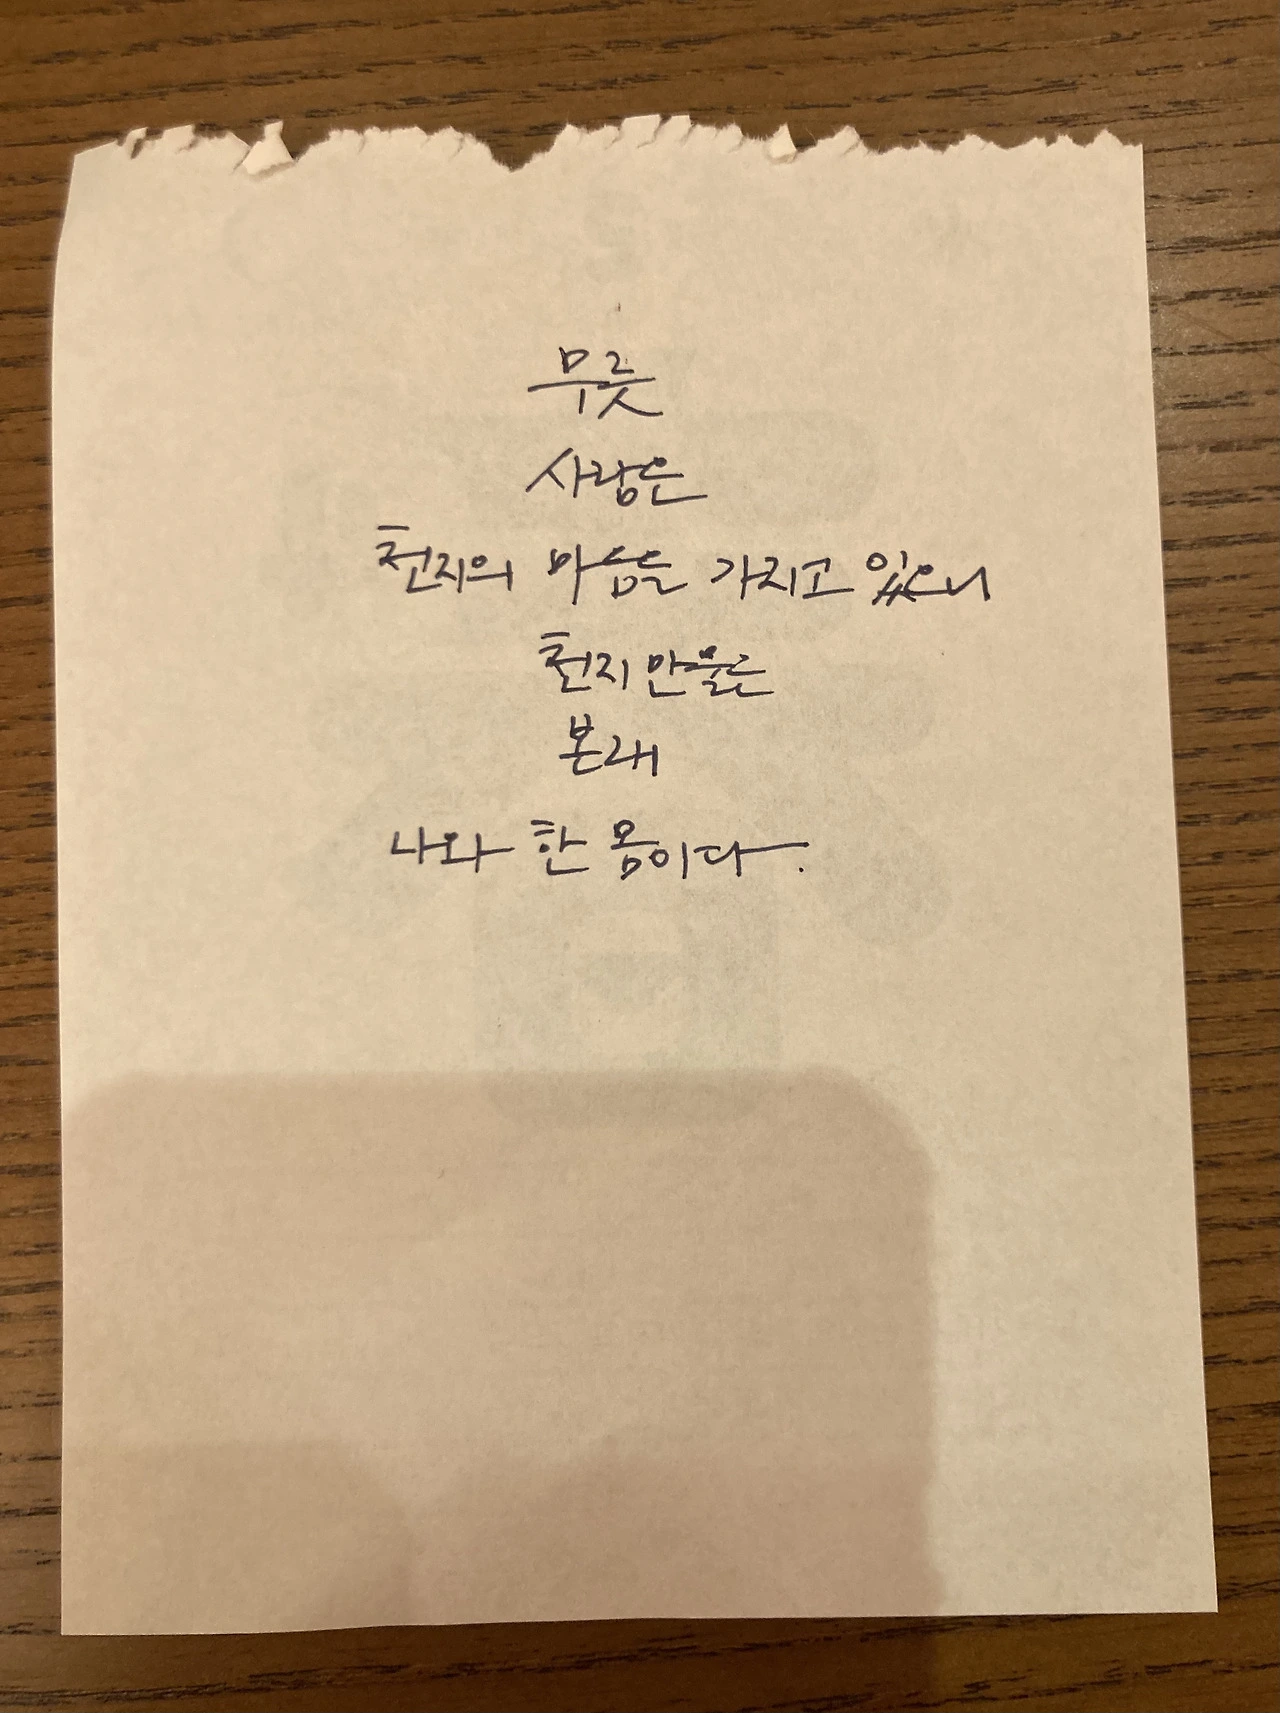 무릇
사람은
천지의 마음을 가지고 있으니
천지 만물은
본래
나와 한 몸이다.